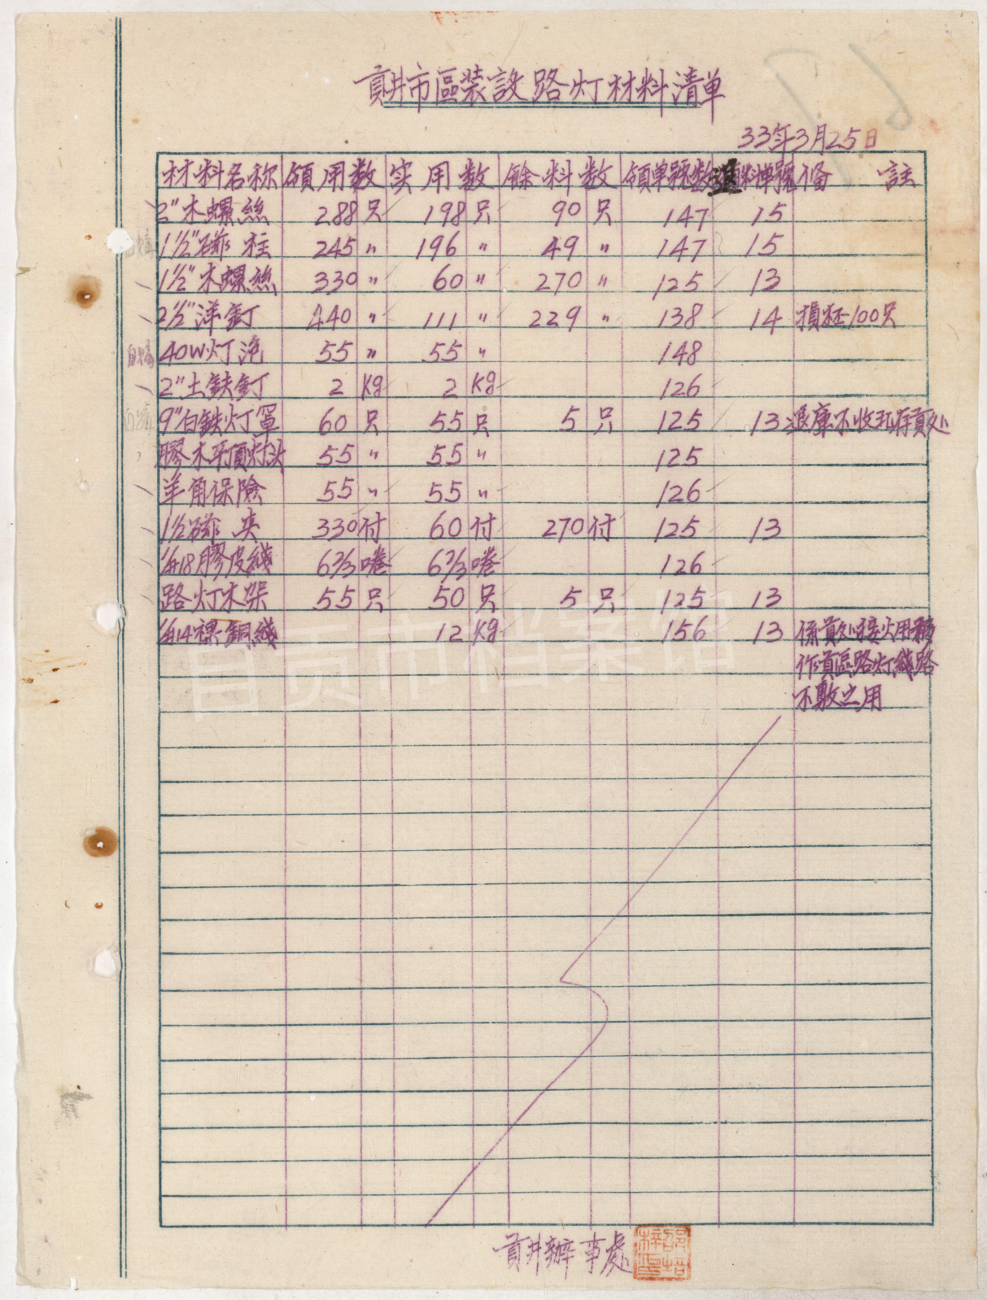 貢井市區装設路灯材料清单
33年3月25日
材料名称 領用数 实用数 餘料数 領单號数 退料单號 俻註
2"木螺絲 288只 198只 90只 147 15
1½"磁柱 245〃 196〃 49〃 147 15
1½"木螺絲 330〃 60〃 270〃 125 13
2½"洋釘 440〃 111〃 229〃 138 14 損坯100只
40W灯泡 55〃 55〃 148
2"土鉄釘 2Kg 2Kg 126
9"白鉄灯罩 60只 55只 5只 125 13 退庫不收玨存貢处
膠木平頂灯头 55〃 55〃 125
羊角保險 55〃 55〃 126
1½磁夾 330付 60付 270付 125 13
1/#18膠皮綫 6⅔捲 6⅔捲 126
路灯木架 55只 50只 5只 125 13
1/#14裸銅綫 12Kg 156 13 係貢处接火用移
作貢區路灯綫路
不敷之用
貢井辦事處
自贡市档案馆